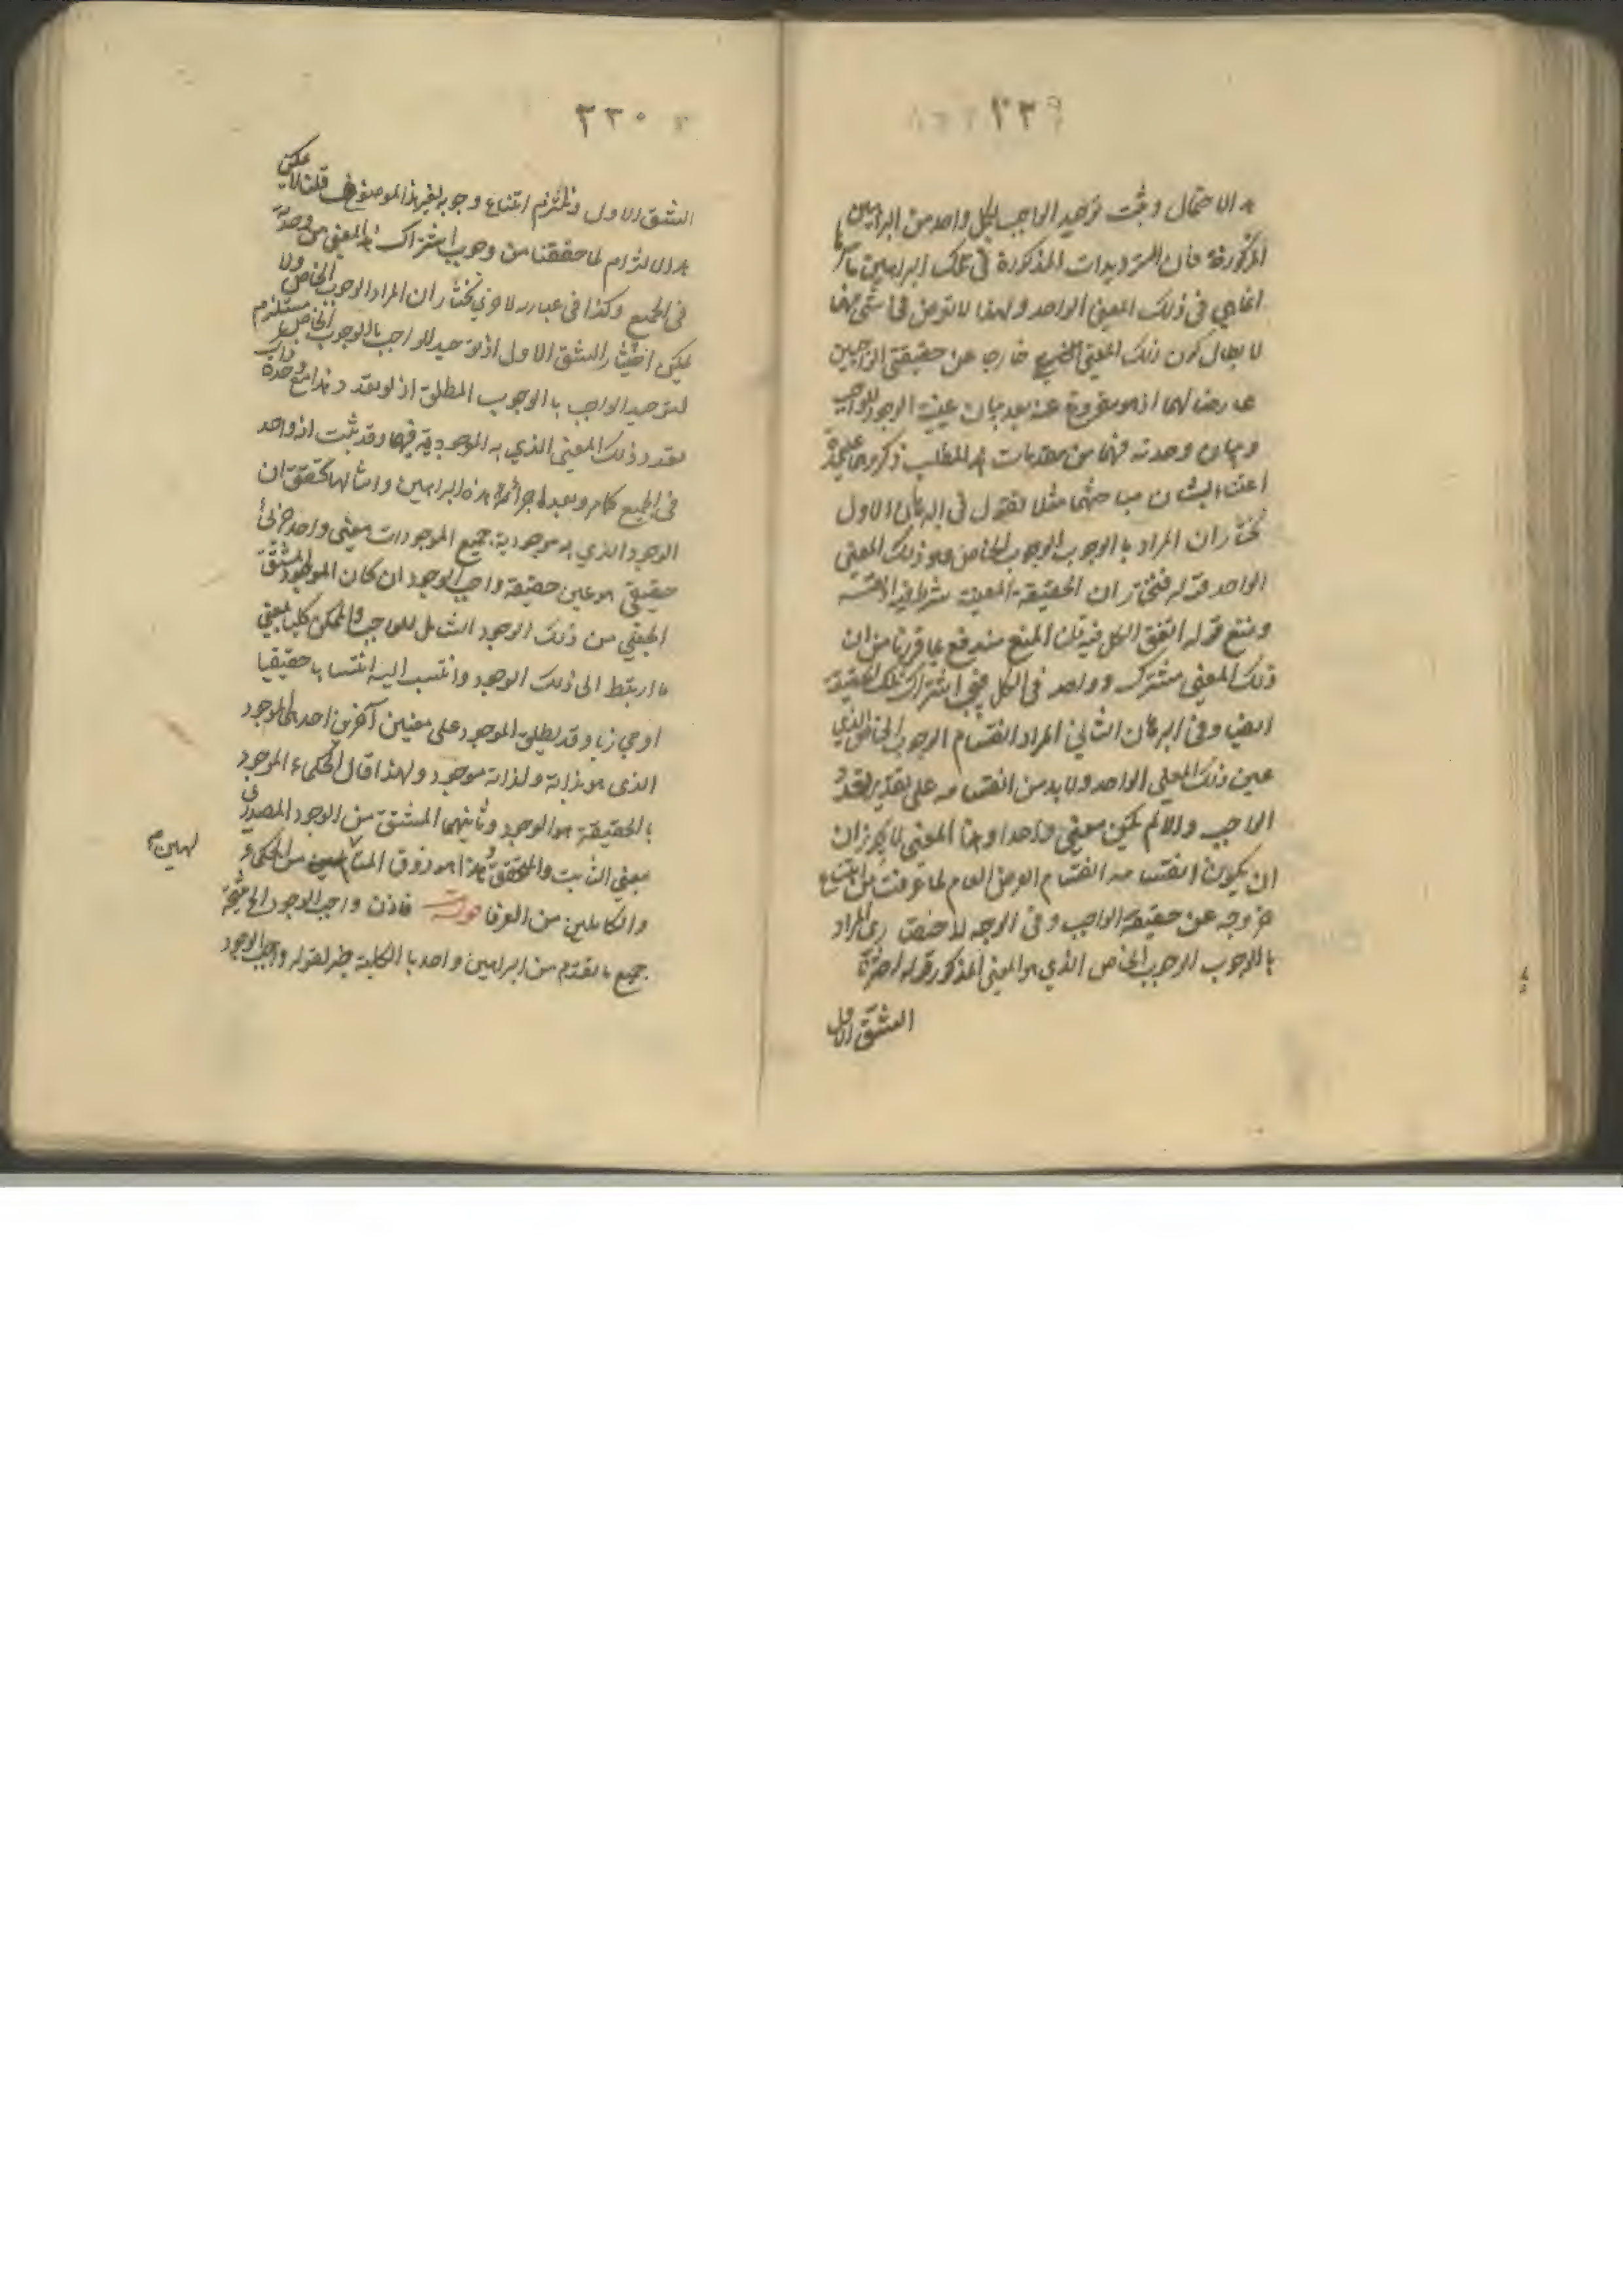 ٣٣٩
هذا الاحتمال وثبت توحيد الواجب بكل واحد من البراهين
المذكورة فان الترديدات المذكورة في تلك البراهين باسرها
انما هي في ذلك المعنى الواحد ولهذا لا تعرض في شيء منها
لابطال كون ذلك المعنى خارجا عن حقيقة الواجبين
عارضا لهما اذ هو مفروغ عنه بعد بيان عينية الوجود للواجب
وبيان وحدته فهما من مقدمات هذا المطلب ذكروهما
اعتناء بشأن مباحثهما مثلا نقول في البرهان الاول
نختار ان المراد بالوجوب الوجوب الخاص وهو ذلك المعنى
الواحد قوله فنختار ان الحقيقة المعينة شرط
ومنع قوله اتفق الكل فيه قلنا المنع مندفع بما قررنا من ان
ذلك المعنى مشترك وواحد في الكل فيجب اشتراك تلك الحقيقة
ايضا وفي البرهان الثاني المراد انقسام الوجوب الخاص الذي
عين ذلك المعنى الواحد ولا بد من انقسامه على تقدير تعدد
الواجب والا لم يكن معنى واحدا وهذا المعنى لا يجوز ان
ان يكون انقسامه انقسام العرض العام لما عرفت من امتناع
خروجه عن حقيقة الواجب وفي الوجه المراد
بالوجوب الوجوب الخاص الذي هو المعنى المذكور قوله اخترنا
الشق الاول
٣٣٠
الشق الاول ونلتزم امتناع وجوبه بغير هذا الموصوف قلنا لا يمكن
هذا الالتزام لما حققنا من وجوب اشتراك هذا المعنى من وحدته
في الجميع وكذا في عبارة نختار ان المراد الوجوب الخاص ولا
يمكن اختيار الشق الاول اذ توحيد الواجب بالوجوب الخاص مستلزم
لتوحيد الواجب بالوجوب المطلق اذ لو تعدد
تعدد ذلك المعنى الذي به الموجودية فيهما وقد ثبت انه واحد
في الجميع كما مر وبعد اجراء هذه البراهين وامثالها تحقق ان
الوجود الذي به موجودية جميع الموجودات معنى واحد جزئي
حقيقي هو عين حقيقة واجب الوجود ان كان الموجود المشتق
الجعلي من ذلك الوجود الشامل للواجب والممكن كليا بمعنى
ما ارتبط الى ذلك الوجود وانتسب اليه انتسابا حقيقيا
او مجازيا وقد يطلق الموجود على معنيين آخرين احدهما الموجود
الذي هو بذاته ولذاته موجود ولهذا قال الحكماء الموجود
بالحقيقة هو الوجود وثانيهما المشتق من الوجود المصدري
بمعنى الثابت والمتحقق وهذا هو ذوق المتألهين من الحكماء
لهين م
والكاملين من العرفا قوله فاذن واجب الوجود
جميع ما تقدم من البراهين واحد بالكلية لقوله واجب الوجود